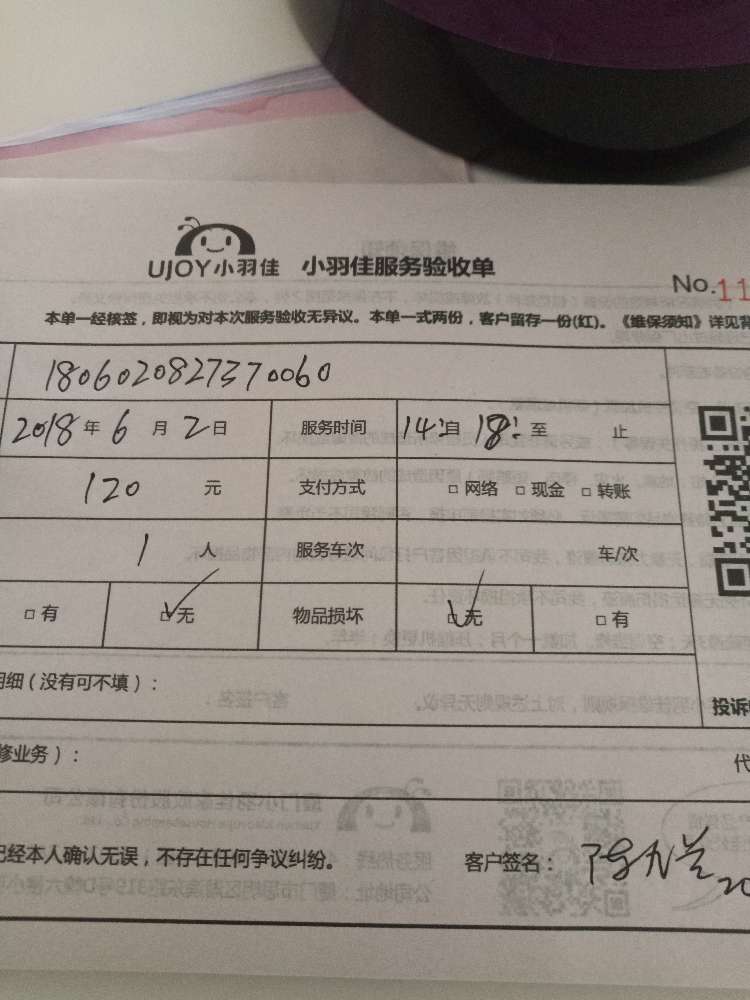 UJOY小羽佳 小羽佳服务验收单
No.11
本单一经核签，即视为对本次服务验收无异议。本单一式两份，客户留存一份(红)。《维保须知》详见背
1806020827370060
2018年6月2日 服务时间 14:自18:至 止
120 元 支付方式 □网络 □现金 □转账
1 人 服务车次 车/次
□有 □无 物品损坏 □无 □有
明细（没有可不填）：
投诉
修业务）：
代
已经本人确认无误，不存在任何争议纠纷。 客户签名： 20